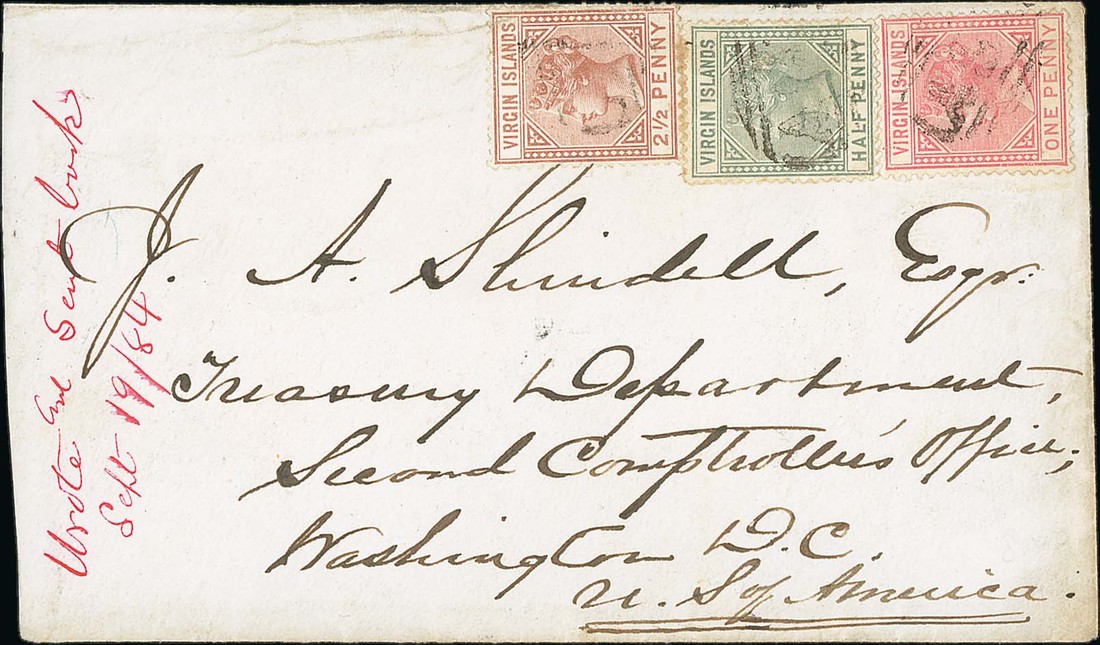 VIRGIN ISLANDS
2½ PENNY
VIRGIN ISLANDS
HALF PENNY
VIRGIN ISLANDS
ONE PENNY
J. A. Shindell, Esqr.
Treasury Department,
Second Comptroller's Office,
Washington D.C.
U. S of America.
Wrote and Sent book
Sept 19/84